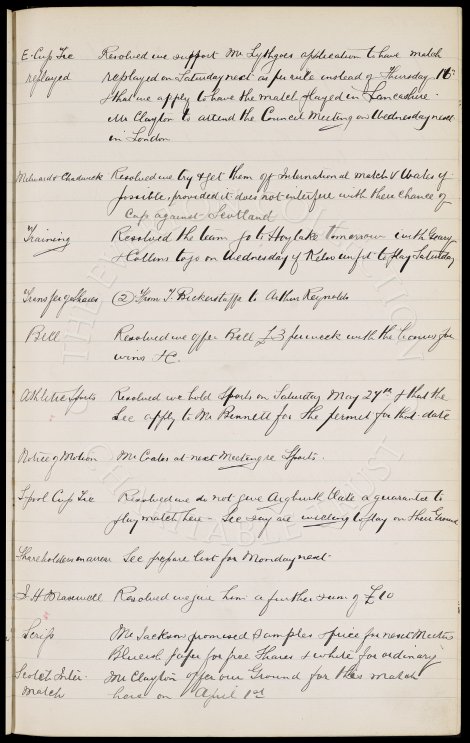 E. Cup Tie Resolved we support Mr Lythgoes application to have match
replayed replayed on Saturday next as per rule instead of Thursday 16th
& that we apply to have the match played in Lancashire.
Mr Clayton to attend the Council Meeting on Wednesday next
in London
Milward & Chadwick Resolved we try & get them off International match V Wales if
possible, provided it does not interfere with their chance of
Cap against Scotland
Training Resolved the team go to Hoylake tomorrow with Geary
& Collins to go on Wednesday if Kelso unfit to play Saturday
Transfer of Shares (2) From T. Bickerstaffe to Arthur Reynolds
Bell Resolved we offer Bell £3 per week with the bonus for
wins &c.
Athletic Sports Resolved we hold Sports on Saturday May 27th & that the
Sec apply to Mr Bennett for the permit for that date
Notice of Motion Mr Coates at next Meeting re Sports.
L'pool Cup Tie Resolved we do not give Aigburth Vale a guarantee to
play match here - Sec say are willing to play on their Ground
Shareholders in arrear Sec prepare list for Monday next
J. H. Resolved we give him a further sum of £10
Scrip Mr Jackson promised samples & price for next Meeting
Blueish paper for free Shares & white for ordinary
Scotch Inter- Mr Clayton offer our Ground for this match
match here on April 1st